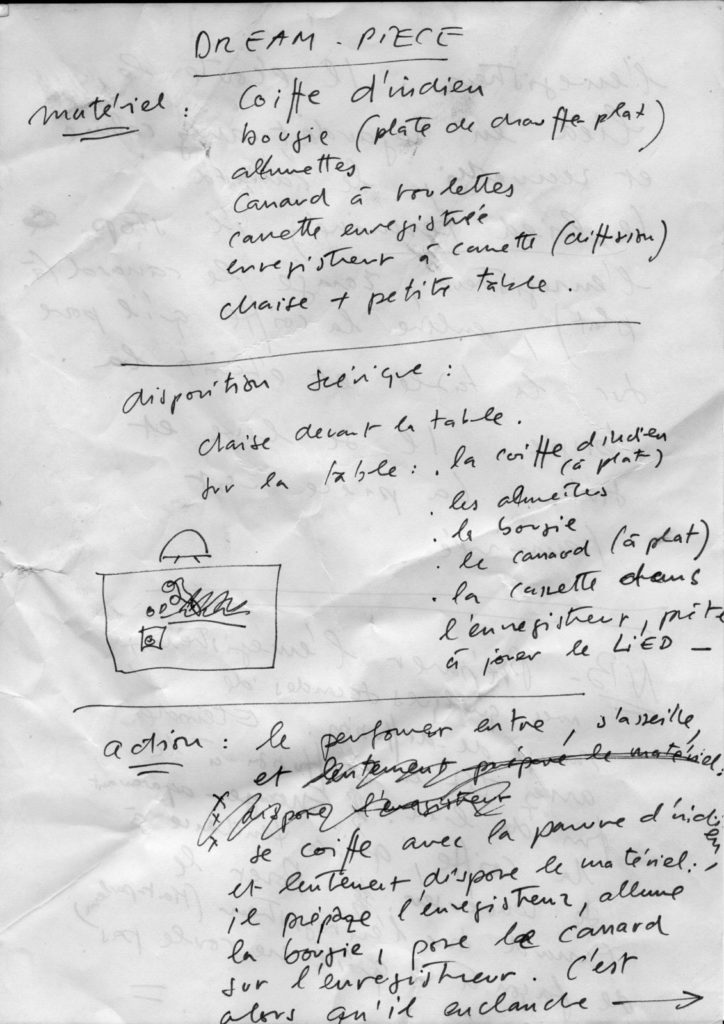 DREAM-PIECE
matériel : Coiffe d'indien
bougie (plate de chauffe plat)
allumettes
canard à roulettes
cassette enregistrée
enregistreur à cassette (diffusion)
chaise + petite table.
disposition scénique :
chaise devant la table.
sur la table : . la coiffe d'indien
(à plat)
. les allumettes
. la bougie
. le canard (à plat)
. la cassette dans
l'enregistreur, prête
à jouer le LiED —
action : le performer entre, s'asseille,
et lentement préparé le matériel.
dispose l'enregistreur
se coiffe avec la parure d'indien
et lentement dispose le matériel :
il prépare l'enregistreur, allume
la bougie, pose le canard
sur l'enregistreur. C'est
alors qu'il enclanche →